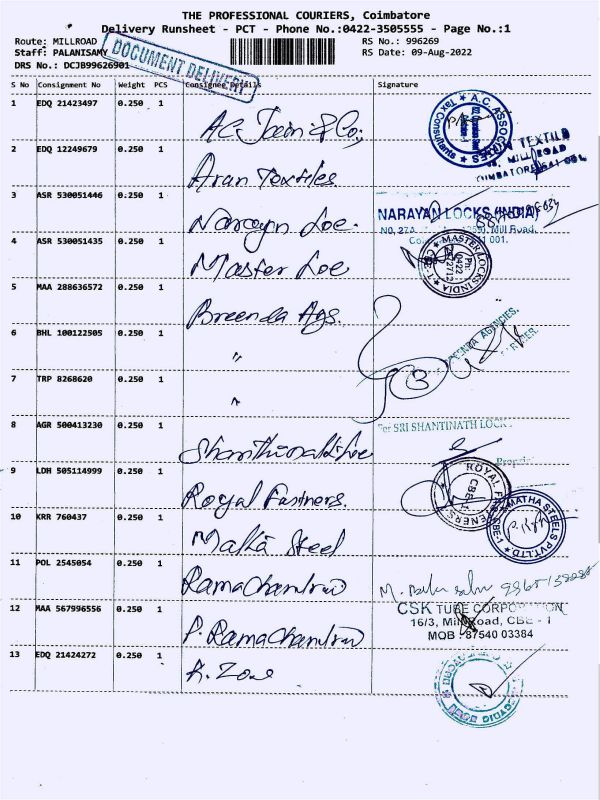 THE PROFESSIONAL COURIERS, Coimbatore
Delivery Runsheet - PCT - Phone No.:0422-3505555 - Page No.:1
Route: MILLROAD
RS No.: 996269
Staff: PALANISAMY
RS Date: 09-Aug-2022
DRS No.: DCJB99626901
DOCUMENT DELIVERY
S No Consignment No Weight PCS Consignee Details Signature
1 EDQ 21423497 0.250 1 A.C. Jain & Co;
A.C. ASSOCIATES
Tax Consultants
2 EDQ 12249679 0.250 1 Aran Textiles.
TEXTILE
MILL ROAD
3 ASR 530051446 0.250 1 Narayn Loc.
NARAYAN LOCKS (INDIA)
NO, 27A Mill Road,
4 ASR 530051435 0.250 1 Master Loc
MASTER LOCKS INDIA
5 MAA 288636572 0.250 1 Breenda Ags.
AGENCIES.
6 BHL 100122505 0.250 1 "
7 TRP 8268620 0.250 1 "
8 AGR 500413230 0.250 1
For SRI SHANTINATH LOCK
9 LDH 505114999 0.250 1 Royal Fastners.
ROYAL FASTENERS
10 KRR 760437 0.250 1 Matha Steel
MATHA STEELS PVT.LTD.
11 POL 2545054 0.250 1 Ramachandran
12 MAA 567996556 0.250 1 P. Ramachandran
CSK TUBE CORPORATION
16/3, Mill Road, CBE - 1
MOB : 87540 03384
13 EDQ 21424272 0.250 1 K. Zone